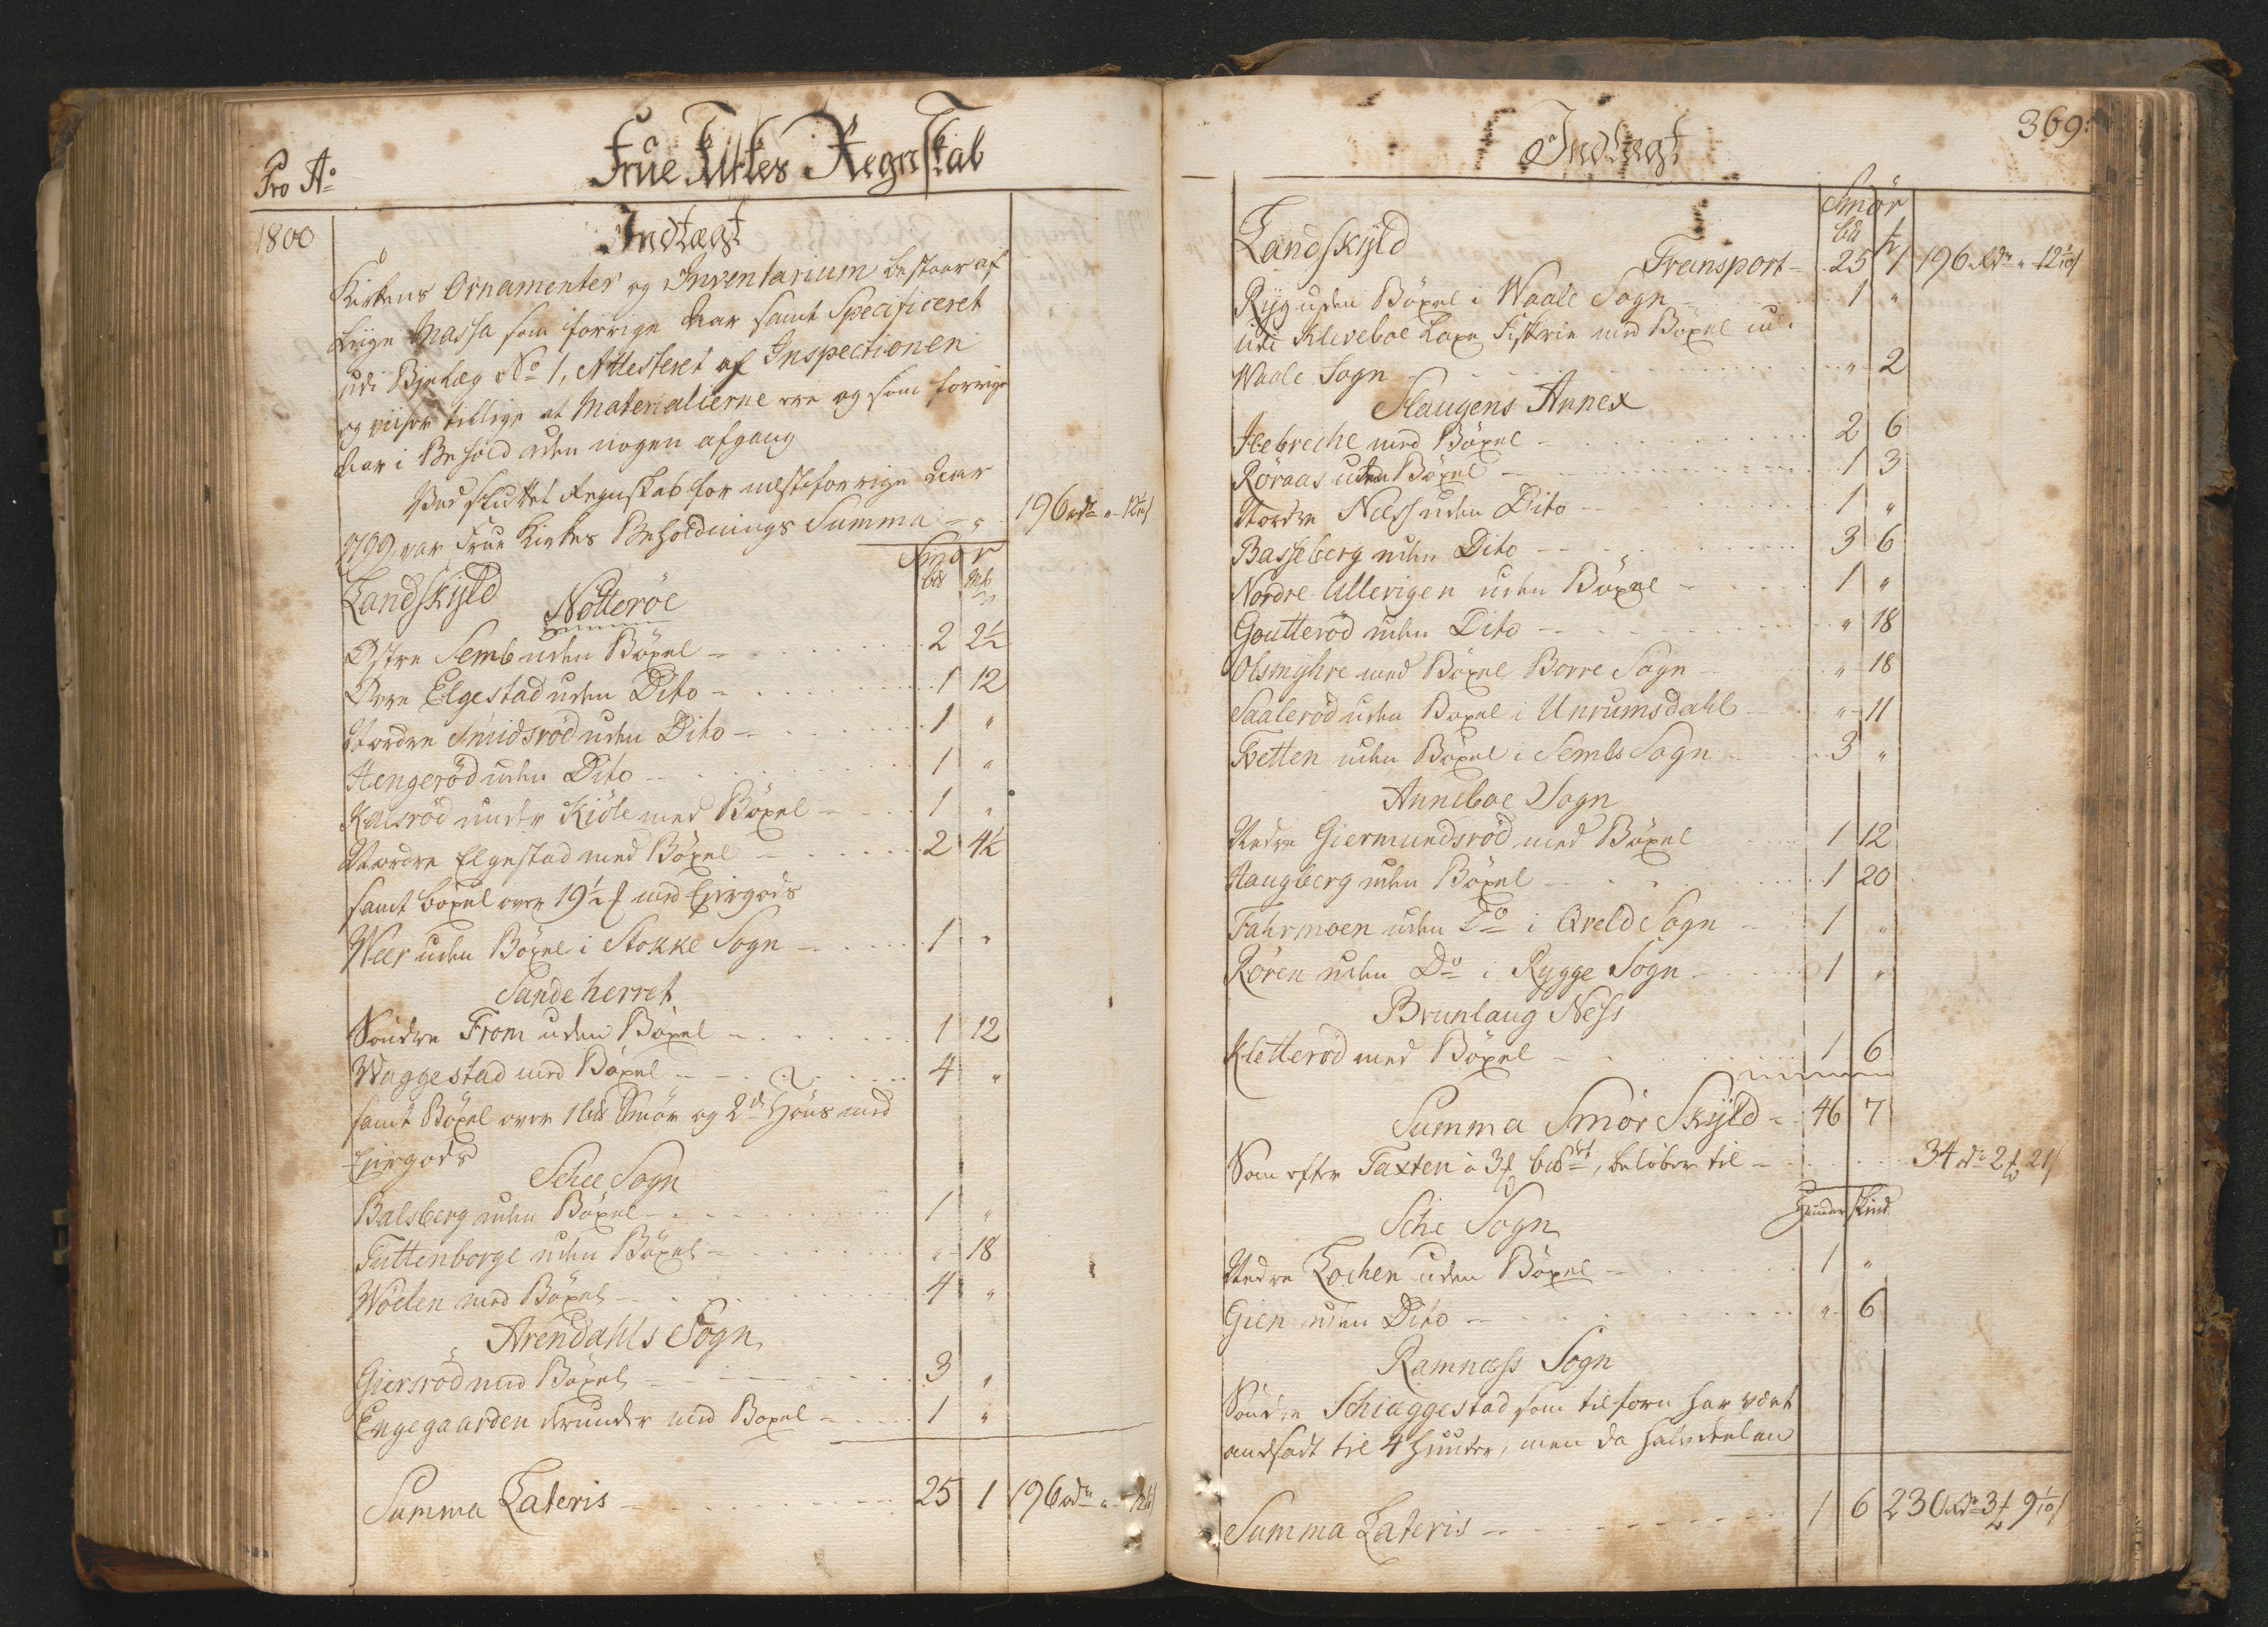 Pro Ao
Frue Kirkes Regnskab
1800
Indtægt
Kirkens Ornamenter og Inventarium bestaar af
liige Massa som forrige Aar samt Specificeret
udi Bjelæg No 1, Attesteret af Inspectionen
og viiser tillige at Materialierne ere og som forrige
Aar i Behold uden nogen afgang
Ved sluttet Regnskab for næstforrige Aar
1799 var Frue Kirkes Beholdnings Summa - " 196 rdr " 12 1/10 s
Smør
Landskyld Nøtterøe bd
Østre Semb uden Böxel - 2 2½
Øvre Elgestad uden Dito - 1 12
Nordre Smidsröd uden Dito - 1 "
Hengeröd uden Dito - 1 "
Kalsröd under Kiöle med Böxel - 1 "
Nordre Elgestad med Böxel - 2 4½
samt böxel over 19½ med Eiegods
Weer uden Böxel i Stokke Sogn - 1 "
Sandeherret
Söndre From uden Böxel - 1 12
Waggestad med Böxel - 4 "
samt Böxel over 1 bd Smör og 2 de Huus med
Eiegods
Schee Sogn
Balsberg uden Böxel - 1 "
Tuttenborge uden Böxel - " 18
Wölen med Böxel - 4 "
Arendahls Sogn
Giersröd med Böxel - 3 "
Engegaarden derunder med Boxel - 1 "
Summa Lateris - 25 1 196 rdr "
369
Indtægt
Smör
Landskyld bd
Transport - 25 1 196 Rdr " 12 1/10 s
Ryg uden Böxel i Waale Sogn - 1 "
Udi Kleveboe Laxe Fiskerie med Böxel udi
Waale Sogn - " 2
Slaugens Annex
Ilebreche med Böxel - 2 6
Röraas uden Böxel - 1 3
Nordre Ness uden Dito - 1 "
Basseberg uden Dito - 3 6
Nordre Ullevigen uden Böxel - 1 "
Goutteröd uden Dito - " 18
Olsmyhre med Böxel Borre Sogn - " 18
Saaleröd uden Boxel i Unrumsdahl - " 11
Tvetten uden Böxel i Sembs Sogn - 3 "
Anneboe Sogn
Nedre Giermundsröd med Böxel 1 12
Haugberg uden Böxel - 1 20
Fahrmoen uden Do i Qvelde Sogn - 1 "
Rören uden Do i Rygge Sogn - 1 "
Brunlaug Ness
Kletteröd med Böxel - 1 6
Summa Smör Skyld - 46 7
Som efter Taxten à 3 bd, beløber til - 34 rdr 2 21 s
Sche Sogn Huuder skind
Nedre Lochen uden Böxel - 1 "
Gien uden Dito - " 6
Ramness Sogn
Söndre Schiaggestad som tilforn har vært
andsadt til 4 huuder, men da halvdeelen
Summa Lateris - 1 6 230 Rdr 3 9 1/10 s